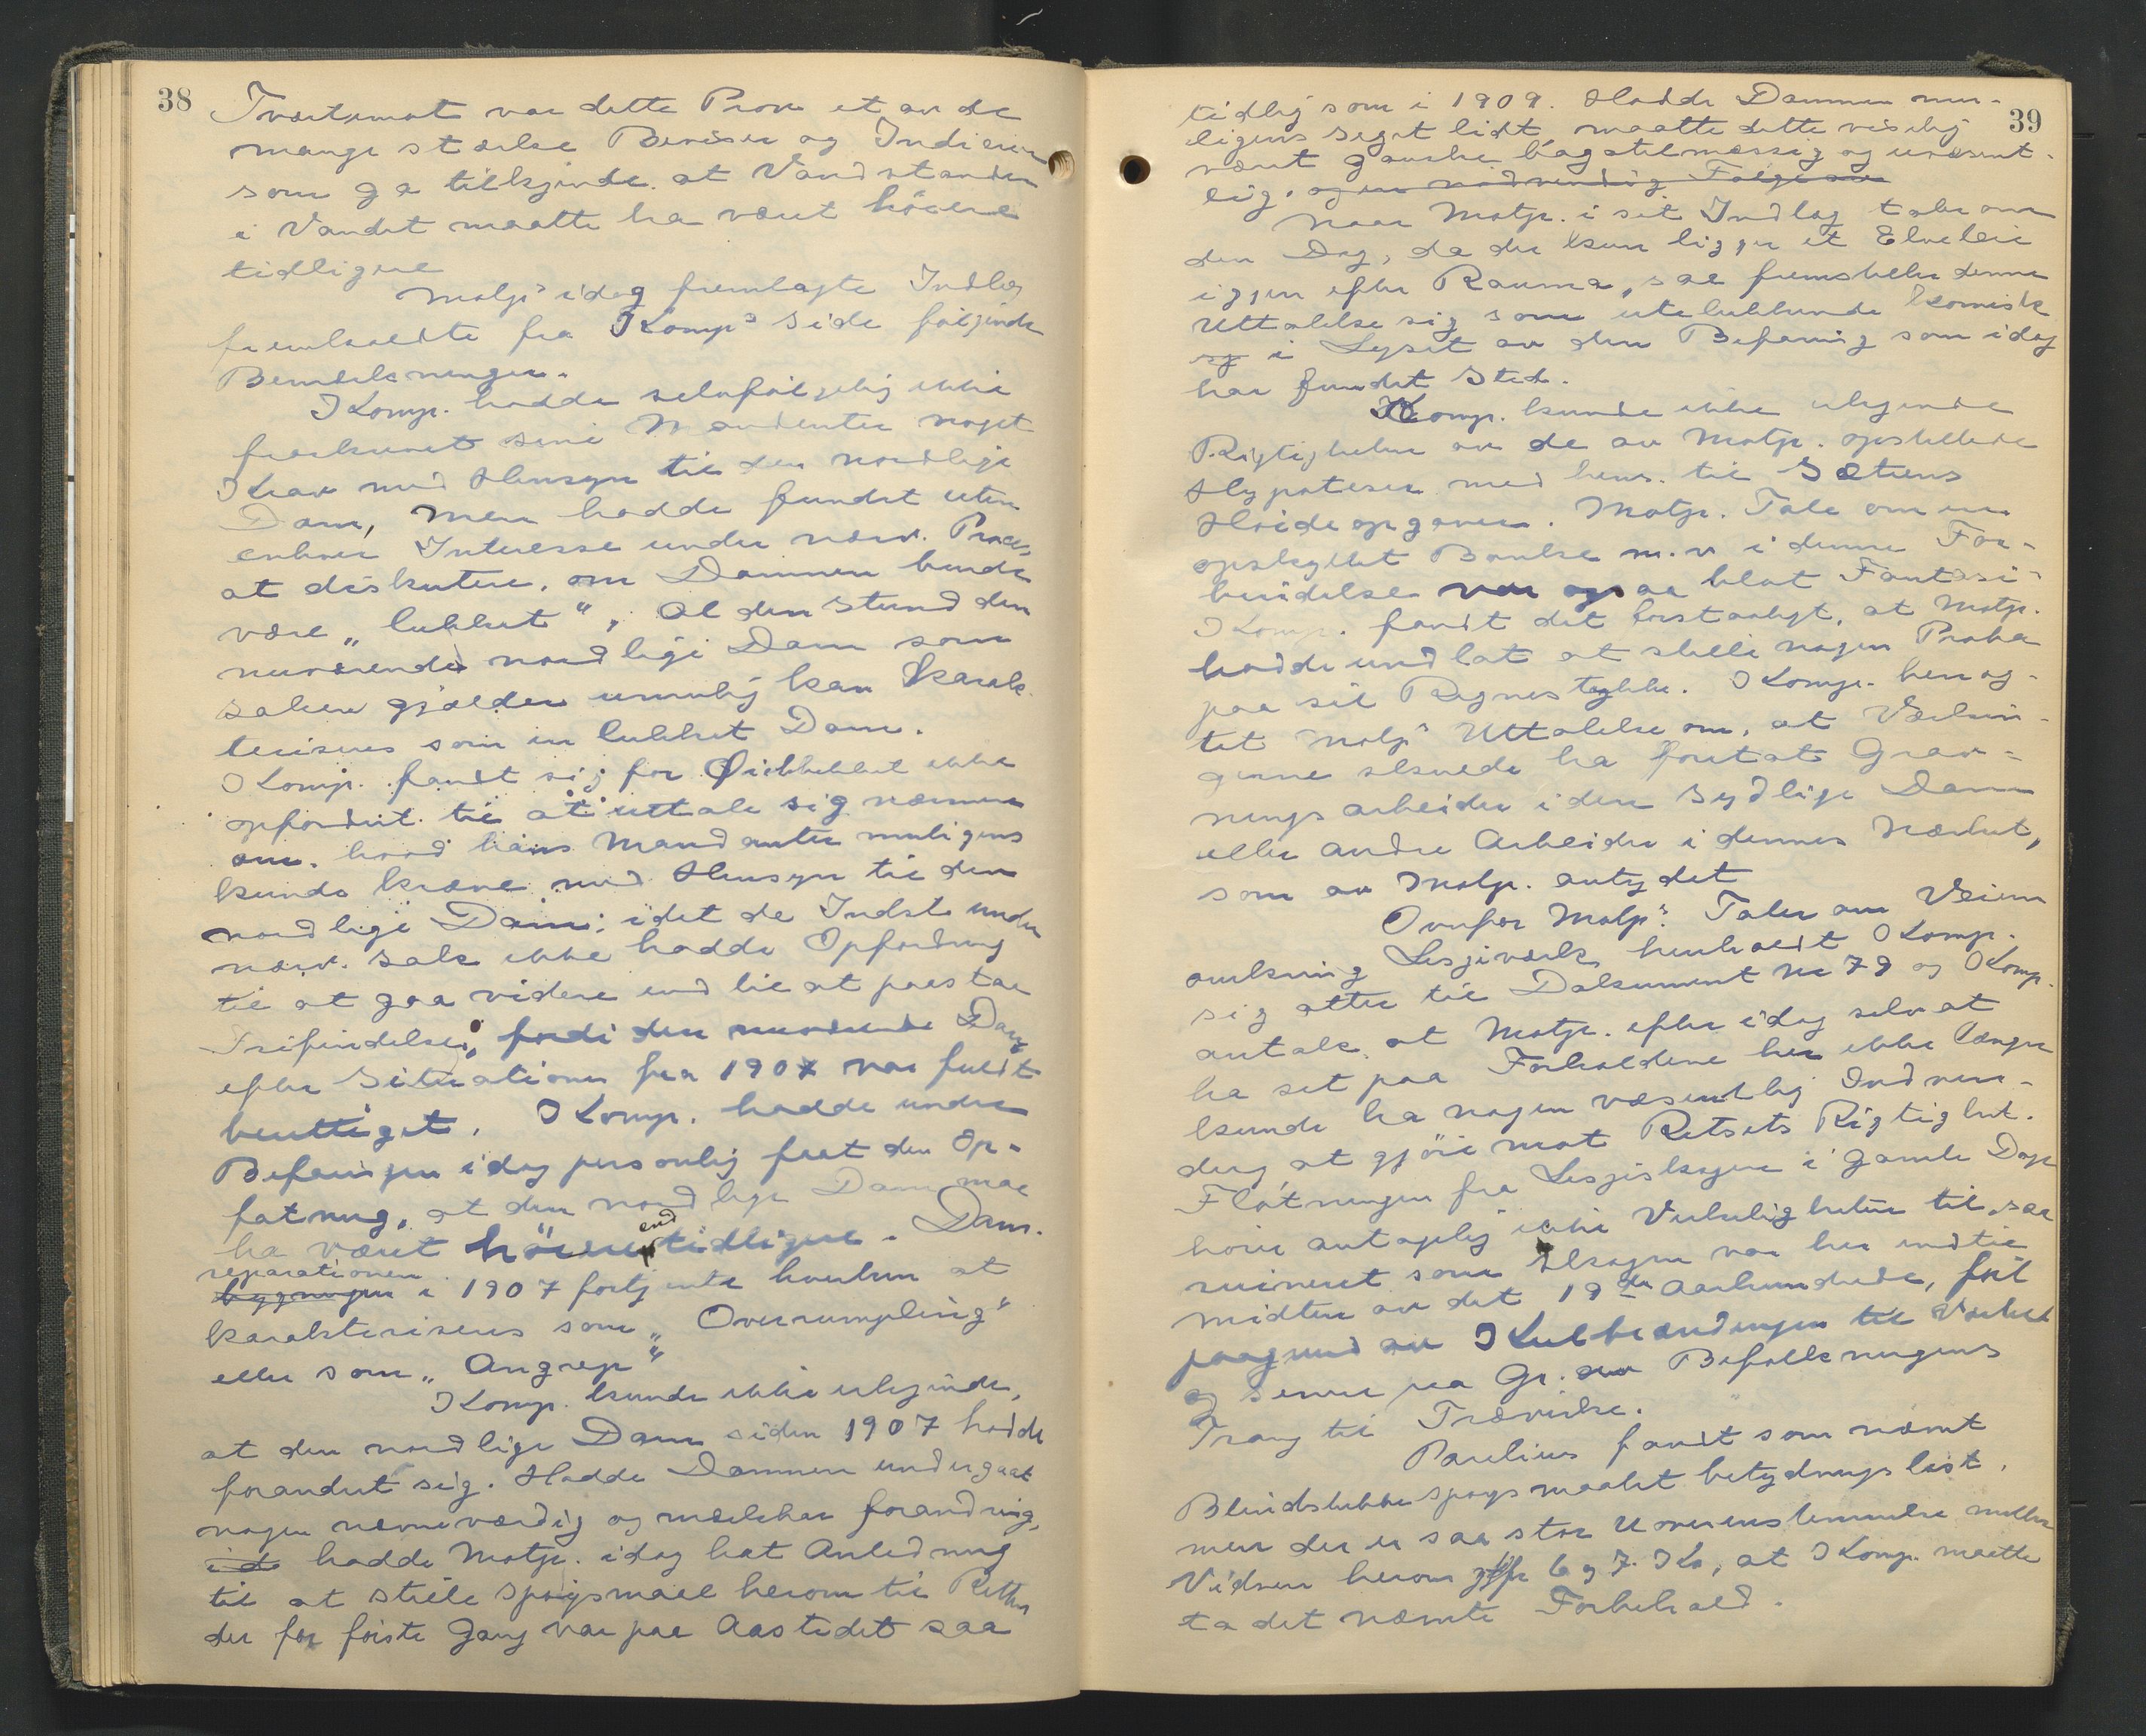 38
Tvertimot var dette Prov et av de
mange stærke Beviser og Indicier
som ga tilkjende at Vandstanden
i Vandet maatte ha været höiere
tidligere
Motp's idag fremlagte Indlæg
fremkaldte fra Komp's Side følgende
Bemærkninger.
Komp. hadde selvfølgelig ikke
frarkunet sine Mandanter noget
Krav med Hensyn til den nordlige
Dam, men hadde fundet uten
enhver Interesse under nærv. Proces,
at diskutere, om Dammen burde
være „lukket“, al den Stund den
nuværende nordlige Dam som
saken gjælder umulig kan karak
teriseres som en lukket Dam.
Komp. fandt sig for Øieblikket ikke
opfordret til at uttale sig nærmere
om, hvad hans Mandanter muligens
kunde kræve med Hensyn til den
nordlige Dam; idet de Indst. under
nærv. Sak ikke hadde Opfordring
til at gaa videre end til at paastaa
Frifindelse, fordi den nuværende Dam
efter Situationen fra 1907 var fuldt
benttiget. Komp. hadde under
Befaringen idag personlig faat den Op-
fatning, at den nordlige Dam maa
ha været höiere end tidligere. Dam-
reparationen
byggningen i 1907 fortjente hverken at
karakteriseres som „Overrumpling“
eller som „Angrep“
Komp. kunde ikke erkjende,
at den nordlige Dam siden 1907 hadde
forandret sig. Hadde Dammen undergaat
nogen nævneværdig og mærkbar forandring,
ida hadde Motp. idag hat Anledning
til at stille spørgsmaal herom til Retten
der for første Gang var paa Aastedet saa
39
tidlig som i 1909. Hadde Dammen mu-
ligens seget lidt, maatte dette visselig
været ganske bagatelmæssig og uvæsent-
lig, og en nødvendig Følge av
Naar Motp. i sit Indlæg taler om
den Dag, da der kun ligger et Elveleie
igjen efter Rauma, saa fremstiller denne
Uttalelse sig som utelukkende komisk
og i Lyset av den Befaring som idag
har fundet Sted.
Komp. kunde ikke erkjende
Rigtigheten av de av Motp. opstillede
Hypoteser med hens. til Sætrens
Høideopgaver. Motp. Tale om en
opskyllet Banke m.v. i denne For-
bindelse var ogsaa blot Fantasi
Komp. fandt det forstaaligt, at Motp.
hadde undlat at stille nogen Prøve
paa sit Regnestykke. Komp. benæg-
tet Motp's Uttalelse om, at Værkin-
gerne skulde ha foretat Grav-
ningsarbeider i den sydlige Dam
eller andre Arbeider i dennes Nærhet,
som av Motp. antydet
Ovenfor Motp's Taler om Veien
omkring Lesjeværk henholdt Komp.
sig atter til Dokument No 79 og Komp.
antok, at Motp. efter idag selv at
ha set paa Forholdene her ikke længer
kunde ha nogen væsentlig Indven-
ding at gjöre mot Ritsets Rigtighet.
Fløtningen fra Lesjeskogene i gamle Dage
hører antagelig ikke Virkeligheten til, saa
ruineret som Skogen var her indtil
midten av det 19de Aarhundrede, først
paagrund av Kulbrændingen til Værket
og senere paa Gr. av Befolkningens
Trang til Trævirke.
Parelius fandt som nævnt
Blindslukkespørgsmaalet betydningsløst,
men der er saa stor Uoverensstemmelse mellem
Vidner herom jfr 6 og 7. , at Komp. maatte
ta det nævnte Forbehold.